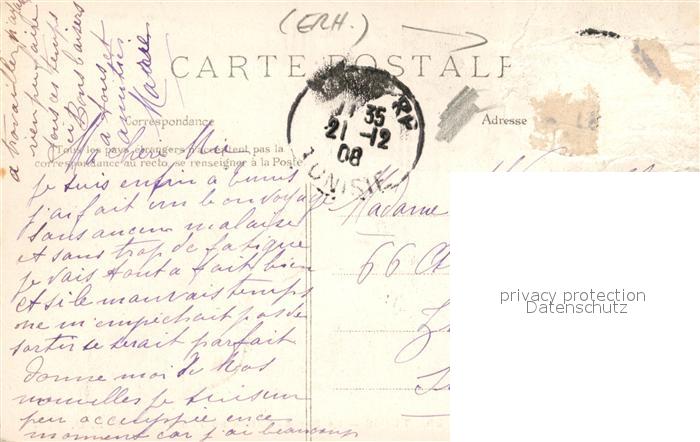 (ERH.)
CARTE POSTALE
Correspondance
Adresse
Tous les pays étrangers n'acceptent pas la
correspondance au recto, se renseigner à la Poste
35
21-12
08
TUNISIE
Ma Chère
Je suis enfin a Tunis
j'ai fait un bon voyage
sans aucun malaise
et sans trop de fatigue
je vais tout a fait bien
et si le mauvais temps
ne m'empêchait pas de
sortir ce serait parfait
donne moi de vos
nouvelles je suis
peu occupée en ce
moment car j'ai beaucoup
a travailler
rien pu faire
tous ces temps
ci Bons baisers
a tous et
amitiés
Madame
66
privacy protection
Datenschutz